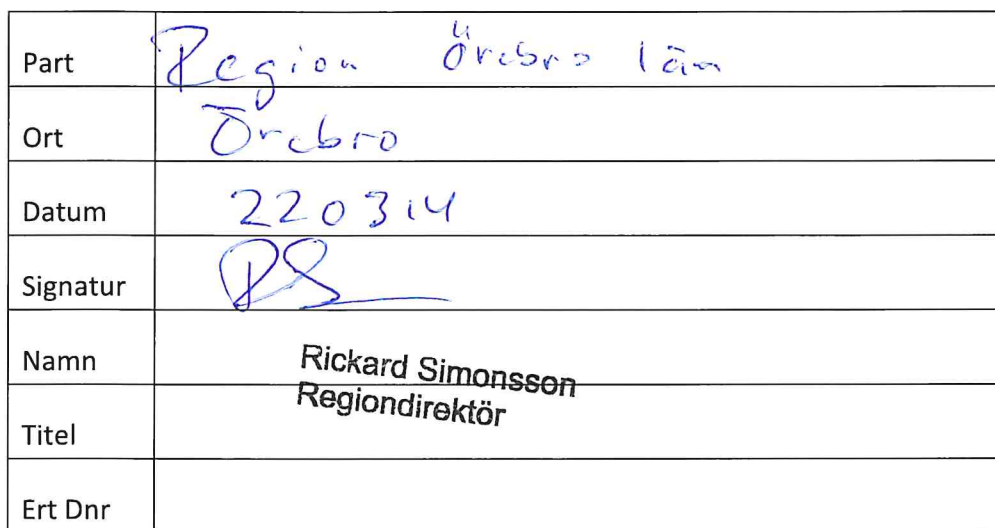 Part Region Örebro län
Ort Örebro
Datum 220314
Signatur RS
Namn Rickard Simonsson
Regiondirektör
Titel
Ert Dnr